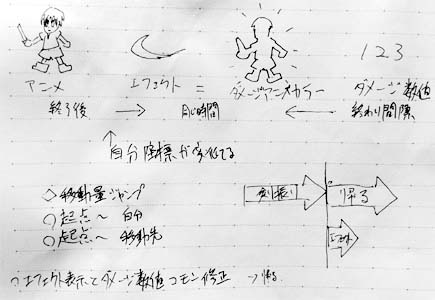 123
アニメ エフェクト = ダメージアニメカラー ダメージ数値
終了後 → 同じ時間 ← 終わり間隔
↑
自分座標が
◇移動量ジャンプ
○起点～自分
○起点～移動先
帰る
○エフェクト表示とダメージ数値コモン修正 →帰る